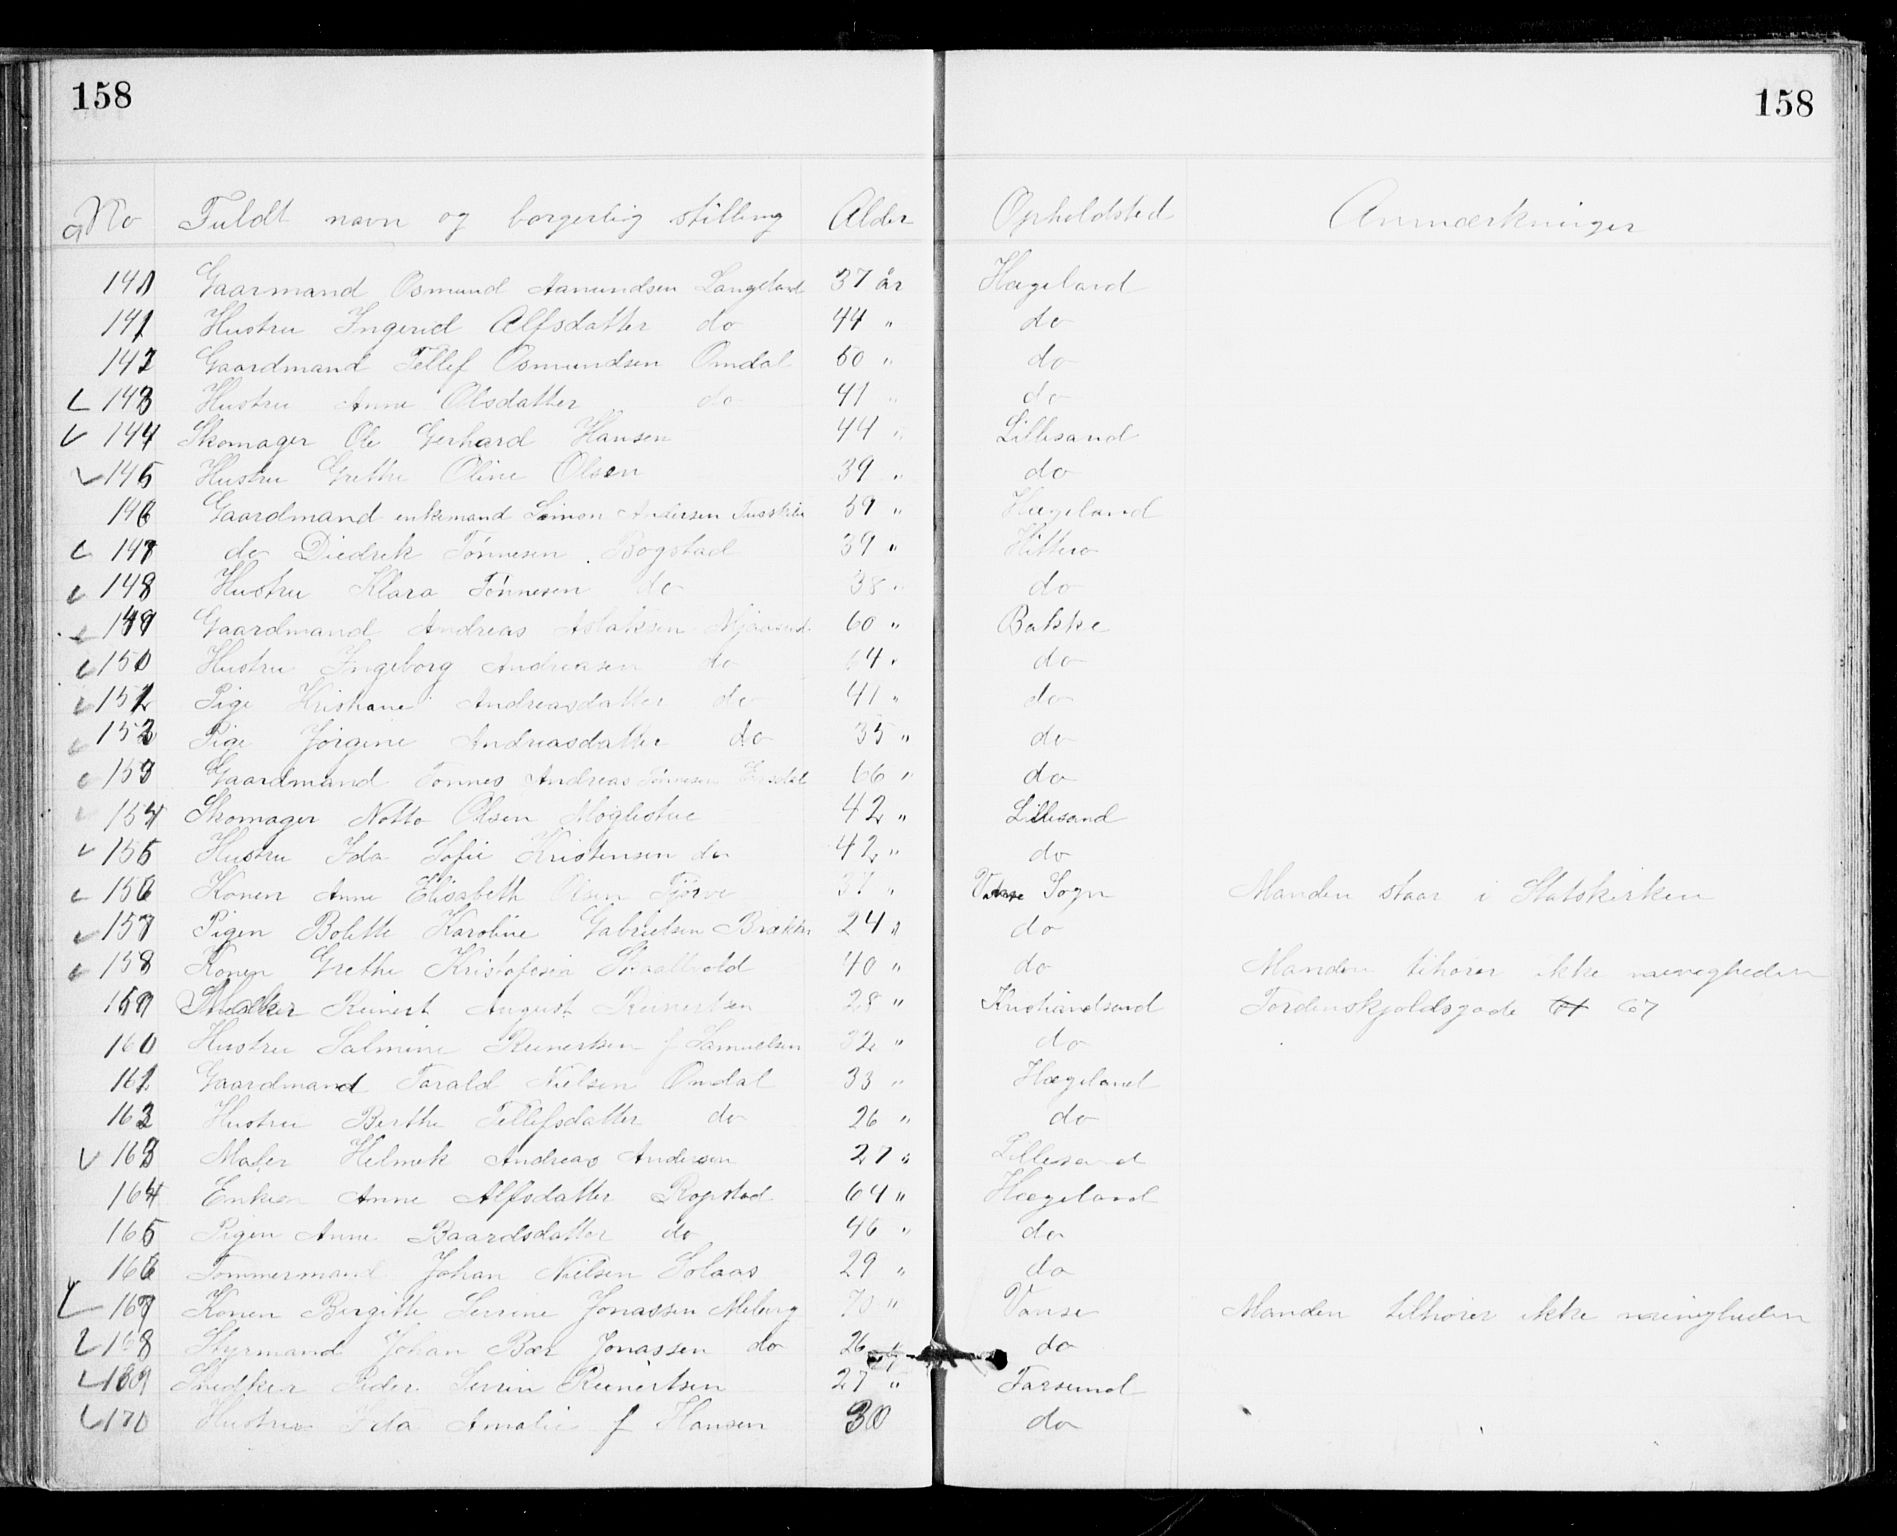 158
158
No Fuldt navn og borgerlig stilling Alder Opholdsted Anmærkninger
140 Gaarmand Osmund Aanundsen Langeland 37 år Hægeland
141 Hustru Ingerid Alfsdatter do 44 " do
142 Gaardmand Tellef Osmundsen Omdal 50 " do
143 Hustru Anne Olsdatter do 41 " do
144 Skomager Ole Gerhard Hansen 44 " Lillesand
145 Hustru Grethe Oline Olsen 39 " do
146 Gaardmand enkemand Simon Andersen 59 " Hægeland
147 do Diedrik Tønnesen Bogstad 39 " Hitterø
148 Hustru Klara Tønnesen do 38 " do
149 Gaardmand Andreas Aslaksen 60 " Bakke
150 Hustru Ingeborg Andreasen do 64 " do
151 Pige Kristiane Andreasdatter do 41 " do
152 Pige Jørgine Andreasdatter do 35 " do
153 Gaardmand Tønnes Andreas Tønnesen 66 " do
154 Skomager Notto Olsen Møglestue 42 " Lillesand
155 Hustru Ida Sofie Kristensen do 42 " do
156 Konen Anne Elisabeth Olsen Tjørve 37 " Vanse Sogn Manden staar i Statskirken
157 Pigen Bolette Karoline Gabrielsen 24 " do
158 Konen Grethe Kristofesen 40 " do Manden tihører ikke menigheden
159 Reinert August Reinertsen 28 " Kristiandsand Tordenskjoldsgade 67
160 Hustru Salmine Reinertsen f Samuelsen 32 " do
161 Gaardmand Tarald Nielsen Omdal 33 " Hægeland
162 Hustru Berthe Tellefsdatter do 26 " do
163 Maler Helmik Andreas Andersen 27 " Lillesand
164 Enken Anne Alfsdatter Ropstad 64 " Hægeland
165 Pigen Anne Baardsdatter do 46 " do
166 Tømmermand Johan Nielsen Solaas 29 " do
167 Konen Birgitte Serine Jonassen Meberg 70 " Vanse Manden tilhører ikke menigheden
168 Styrmand Johan Bær Jonassen do 26 " do
169 Snedker Peder Serin Reinertsen 27 " Farsund
170 Hustru Ida Amalie f Hansen 30 do